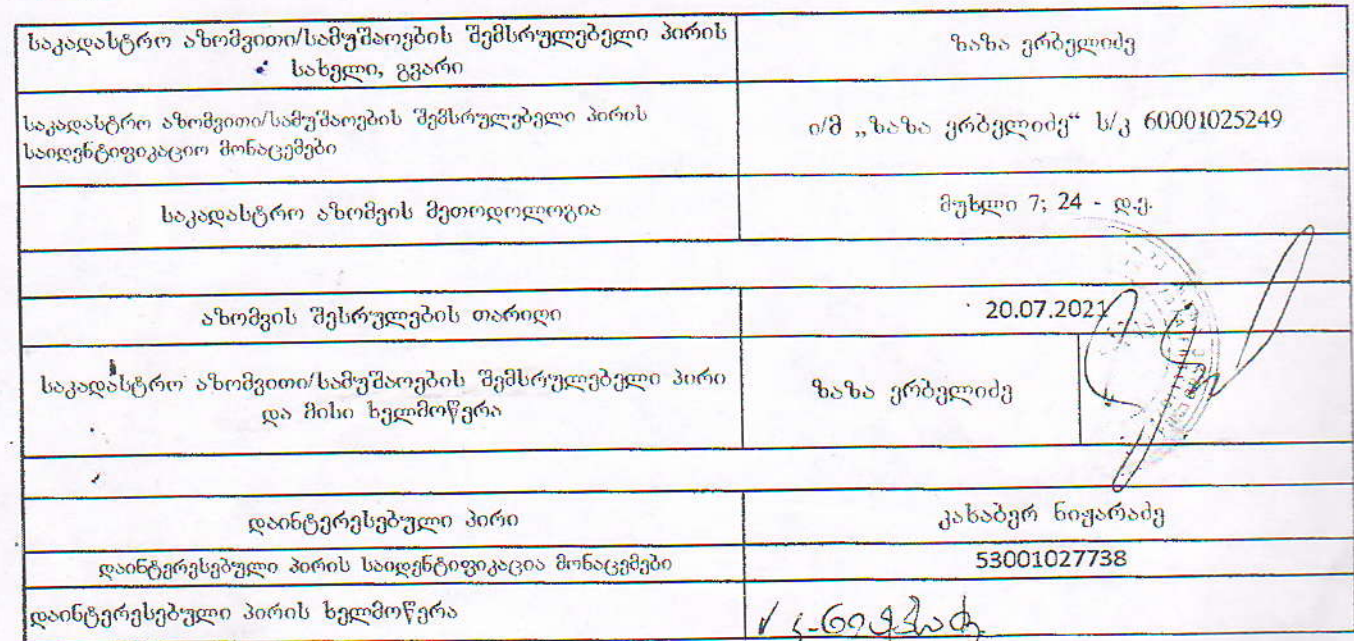 საკადასტრო აზომვითი/სამუშაოების შემსრულებელი პირის
სახელი, გვარი
ზაზა ერბელიძე
საკადასტრო აზომვითი/სამუშაოების შემსრულებელი პირის
საიდენტიფიკაციო მონაცემები
ი/მ „ზაზა ერბელიძე“ ს/კ 60001025249
საკადასტრო აზომვის მეთოდოლოგია
მუხლი 7; 24 - დ.ე.
აზომვის შესრულების თარიღი
20.07.2021
საკადასტრო აზომვითი/სამუშაოების შემსრულებელი პირი
და მისი ხელმოწერა
ზაზა ერბელიძე
დაინტერესებული პირი
კახაბერ ნიჟარაძე
დაინტერესებული პირის საიდენტიფიკაცია მონაცემები
53001027738
დაინტერესებული პირის ხელმოწერა